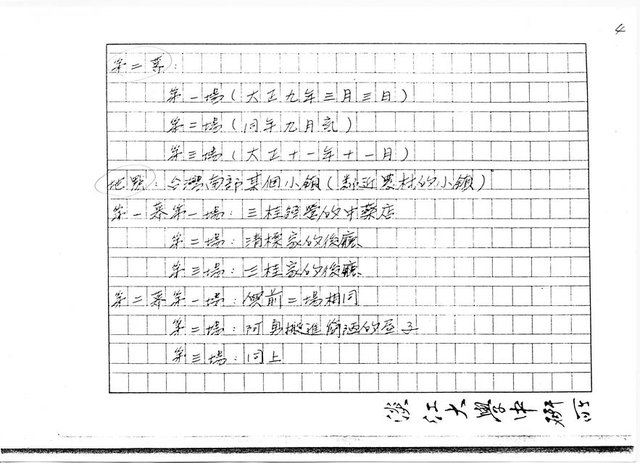 4
第二幕:
第一場(大正九年三月三日)
第二場(同年九月底)
第三場(大正十一年十一月)
地點:台灣南部某個小鎮(鄰近農村的小鎮)
第一幕第一場:三桂經營的中藥店
第二場:清標家的後廳
第三場:三桂家的後廳
第二幕第一場:與前二場相同
第二場:阿勇搬進街運的屋子
第三場:同上
淡江大學中研所